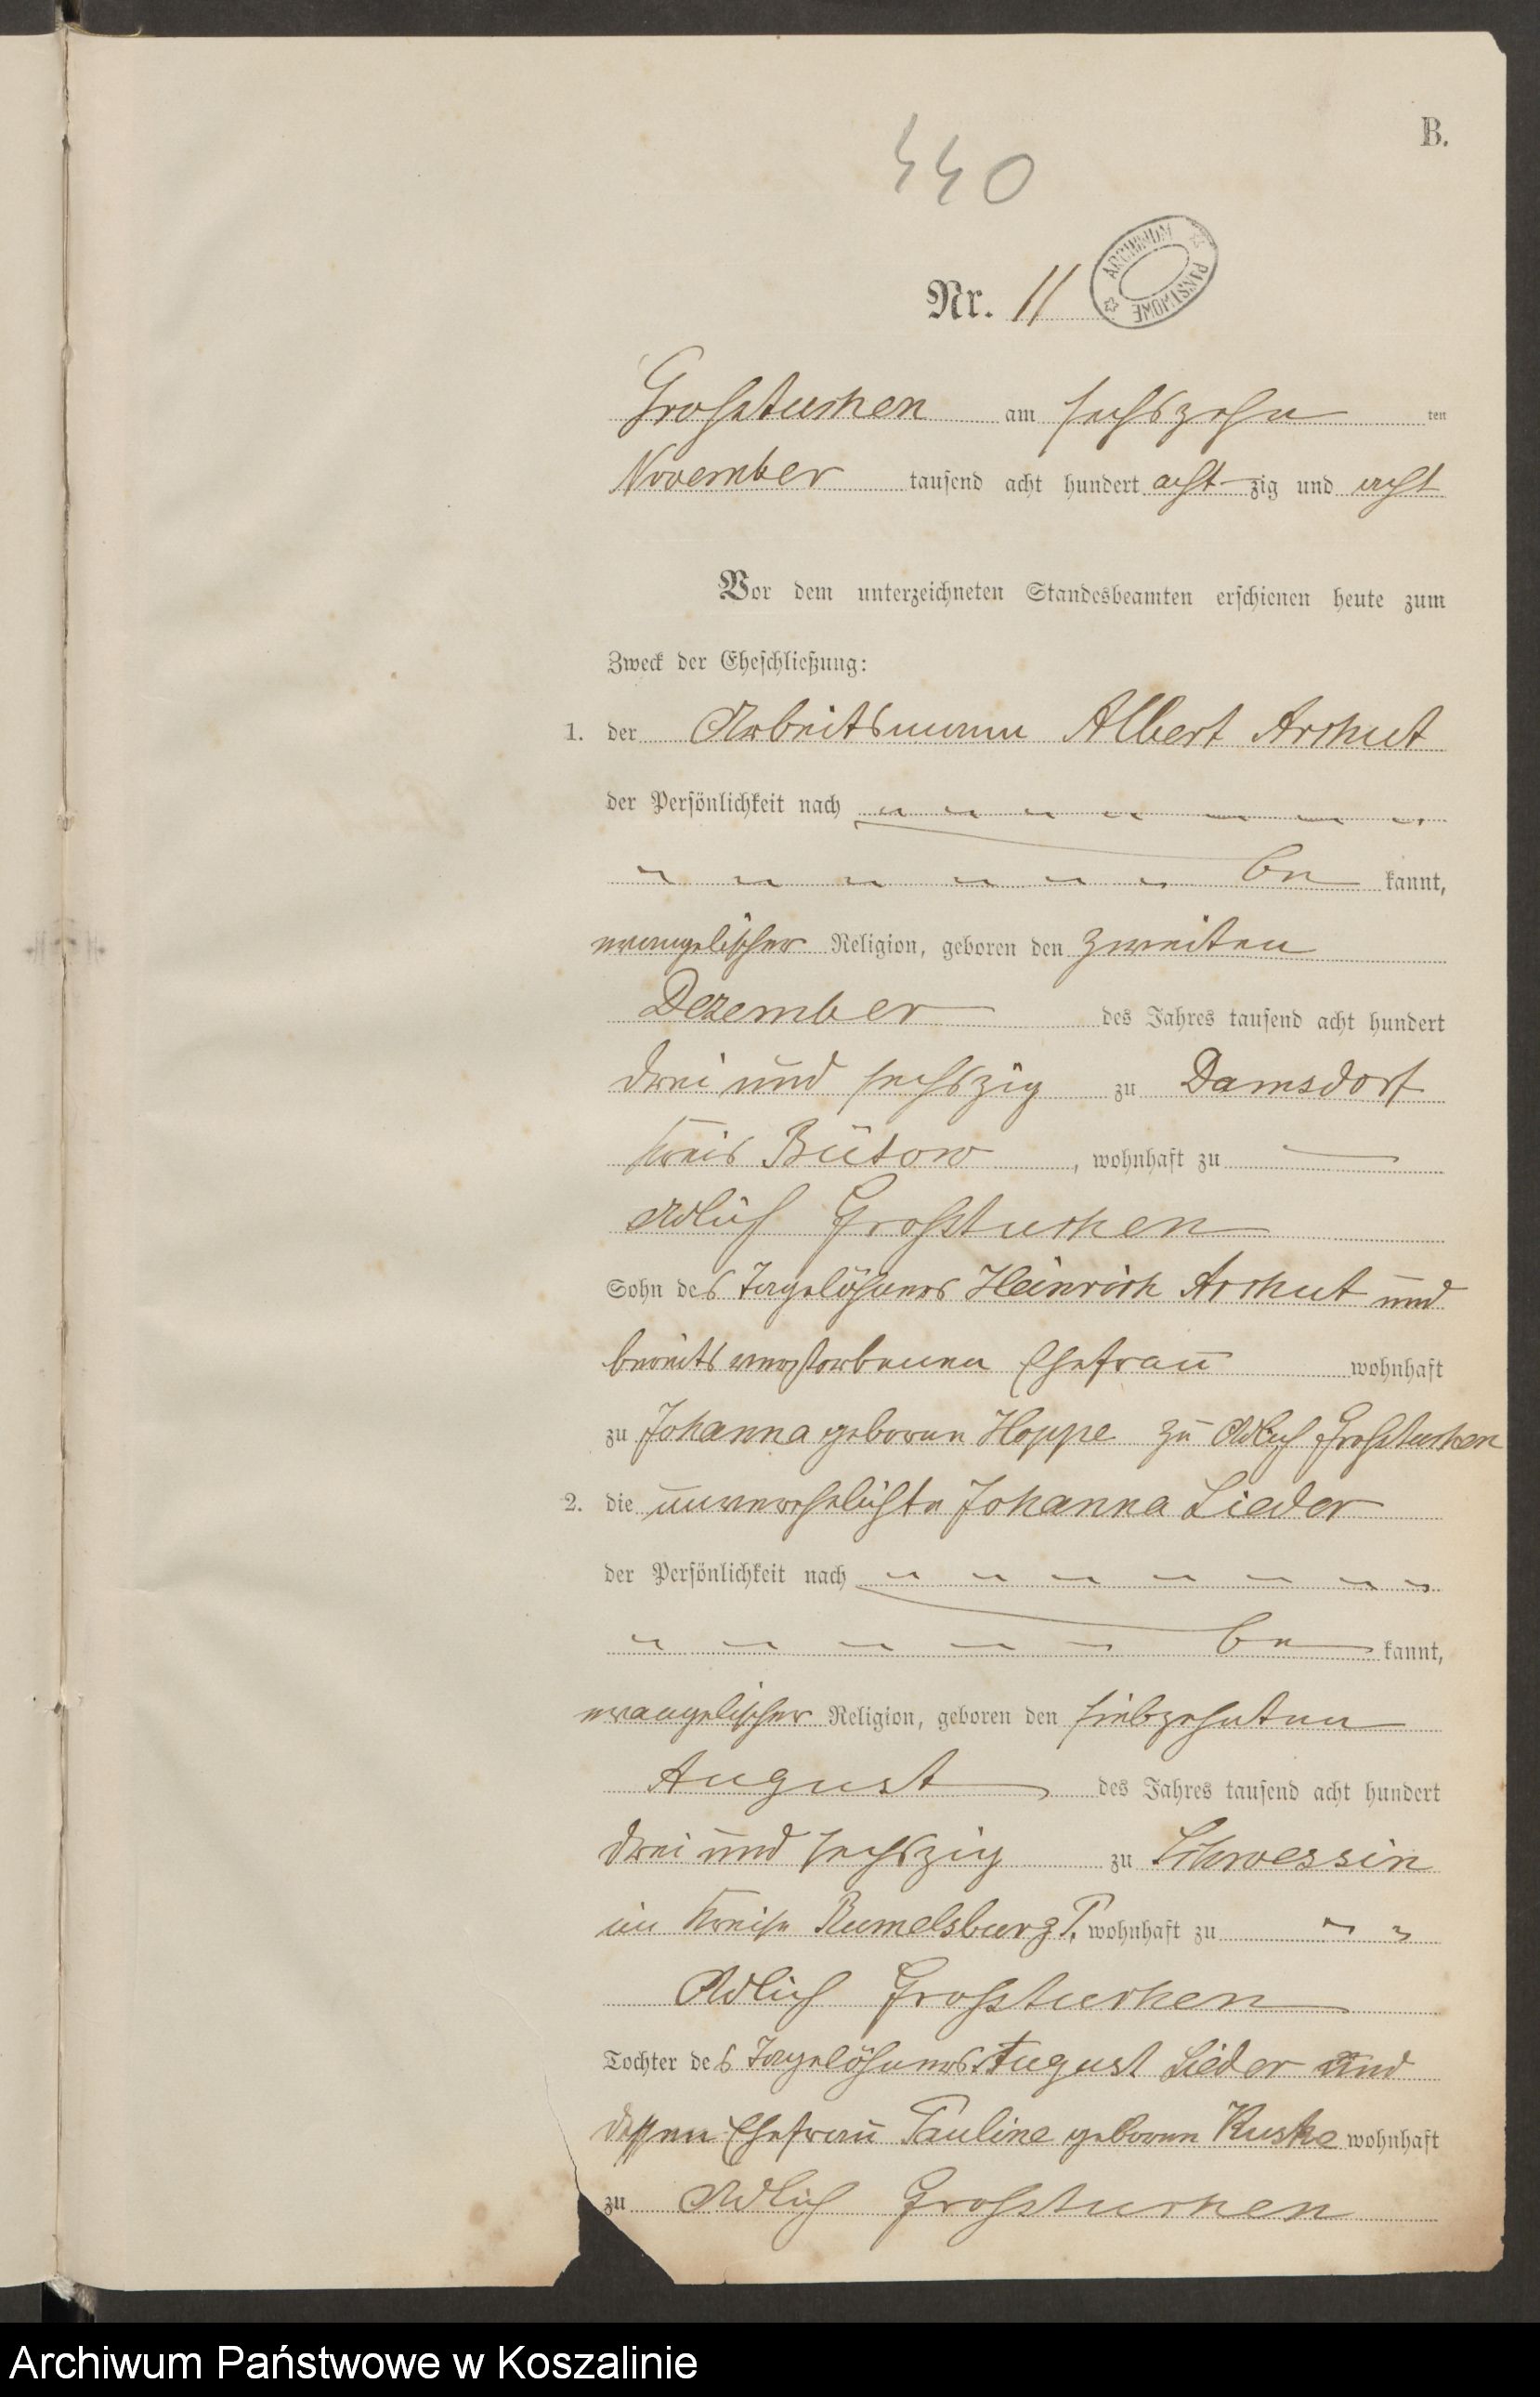 B.
440
Nr. 11
ARCHIWUM PAŃSTWOWE
Grosstuchen am sechszehn ten
November tausend acht hundert acht zig und acht
Vor dem unterzeichneten Standesbeamten erschienen heute zum
Zweck der Eheschließung:
1. der Arbeitsmann Albert Archut
der Persönlichkeit nach
be kannt,
evangelischer Religion, geboren den zweiten
Dezember des Jahres tausend acht hundert
drei und sechszig zu Damsdorf
Kreis Bütow, wohnhaft zu
Adlich Grosstuchen
Sohn des Tagelöhners Heinrich Archut und
bereits verstorbenen Ehefrau wohnhaft
zu Johanna geboren Hoppe zu Adlich Grosstuchen
2. die unverehelichte Johanna Lieder
der Persönlichkeit nach
be kannt,
evangelischer Religion, geboren den siebzehnten
August des Jahres tausend acht hundert
drei und sechszig zu Schwessin
im Kreise Rumelsburg P., wohnhaft zu
Adlich Grosstuchen
Tochter des Tagelöhners August Lieder und
dessen Ehefrau Pauline geboren Kuske wohnhaft
zu Adlich Grosstuchen
Archiwum Państwowe w Koszalinie